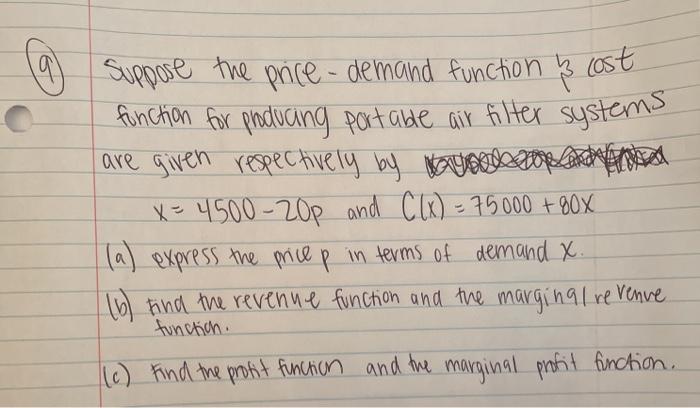 9 Suppose the price-demand function & cost
function for producing portable air filter systems
are given respectively by
x = 4500 - 20p and C(x) = 75000 + 80x
(a) express the price p in terms of demand x.
(b) Find the revenue function and the marginal revenue
function.
(c) Find the profit function and the marginal profit function.